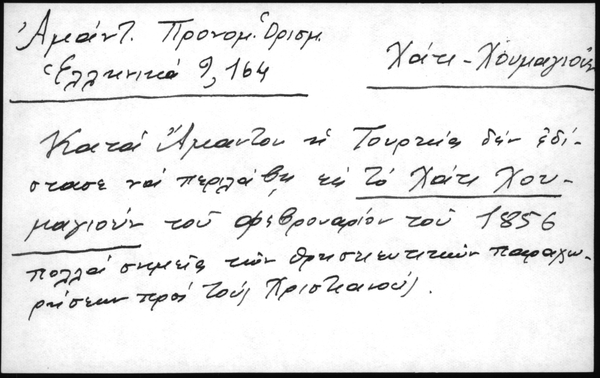 Ἀμάντ. Προνομ. Ὁρισμ.
Ἑλληνικά 9, 164
Χάτι-Χουμαγιούν
Κατά Ἄμαντον ἡ Τουρκία δέν ἐδί-
στασε νά περιλάβῃ εἰς τό Χάτι Χου-
μαγιούν τοῦ Φεβρουαρίου τοῦ 1856
πολλά σημεῖα τῶν θρησκευτικῶν παραχω-
ρήσεων πρός τούς Χριστιανούς.